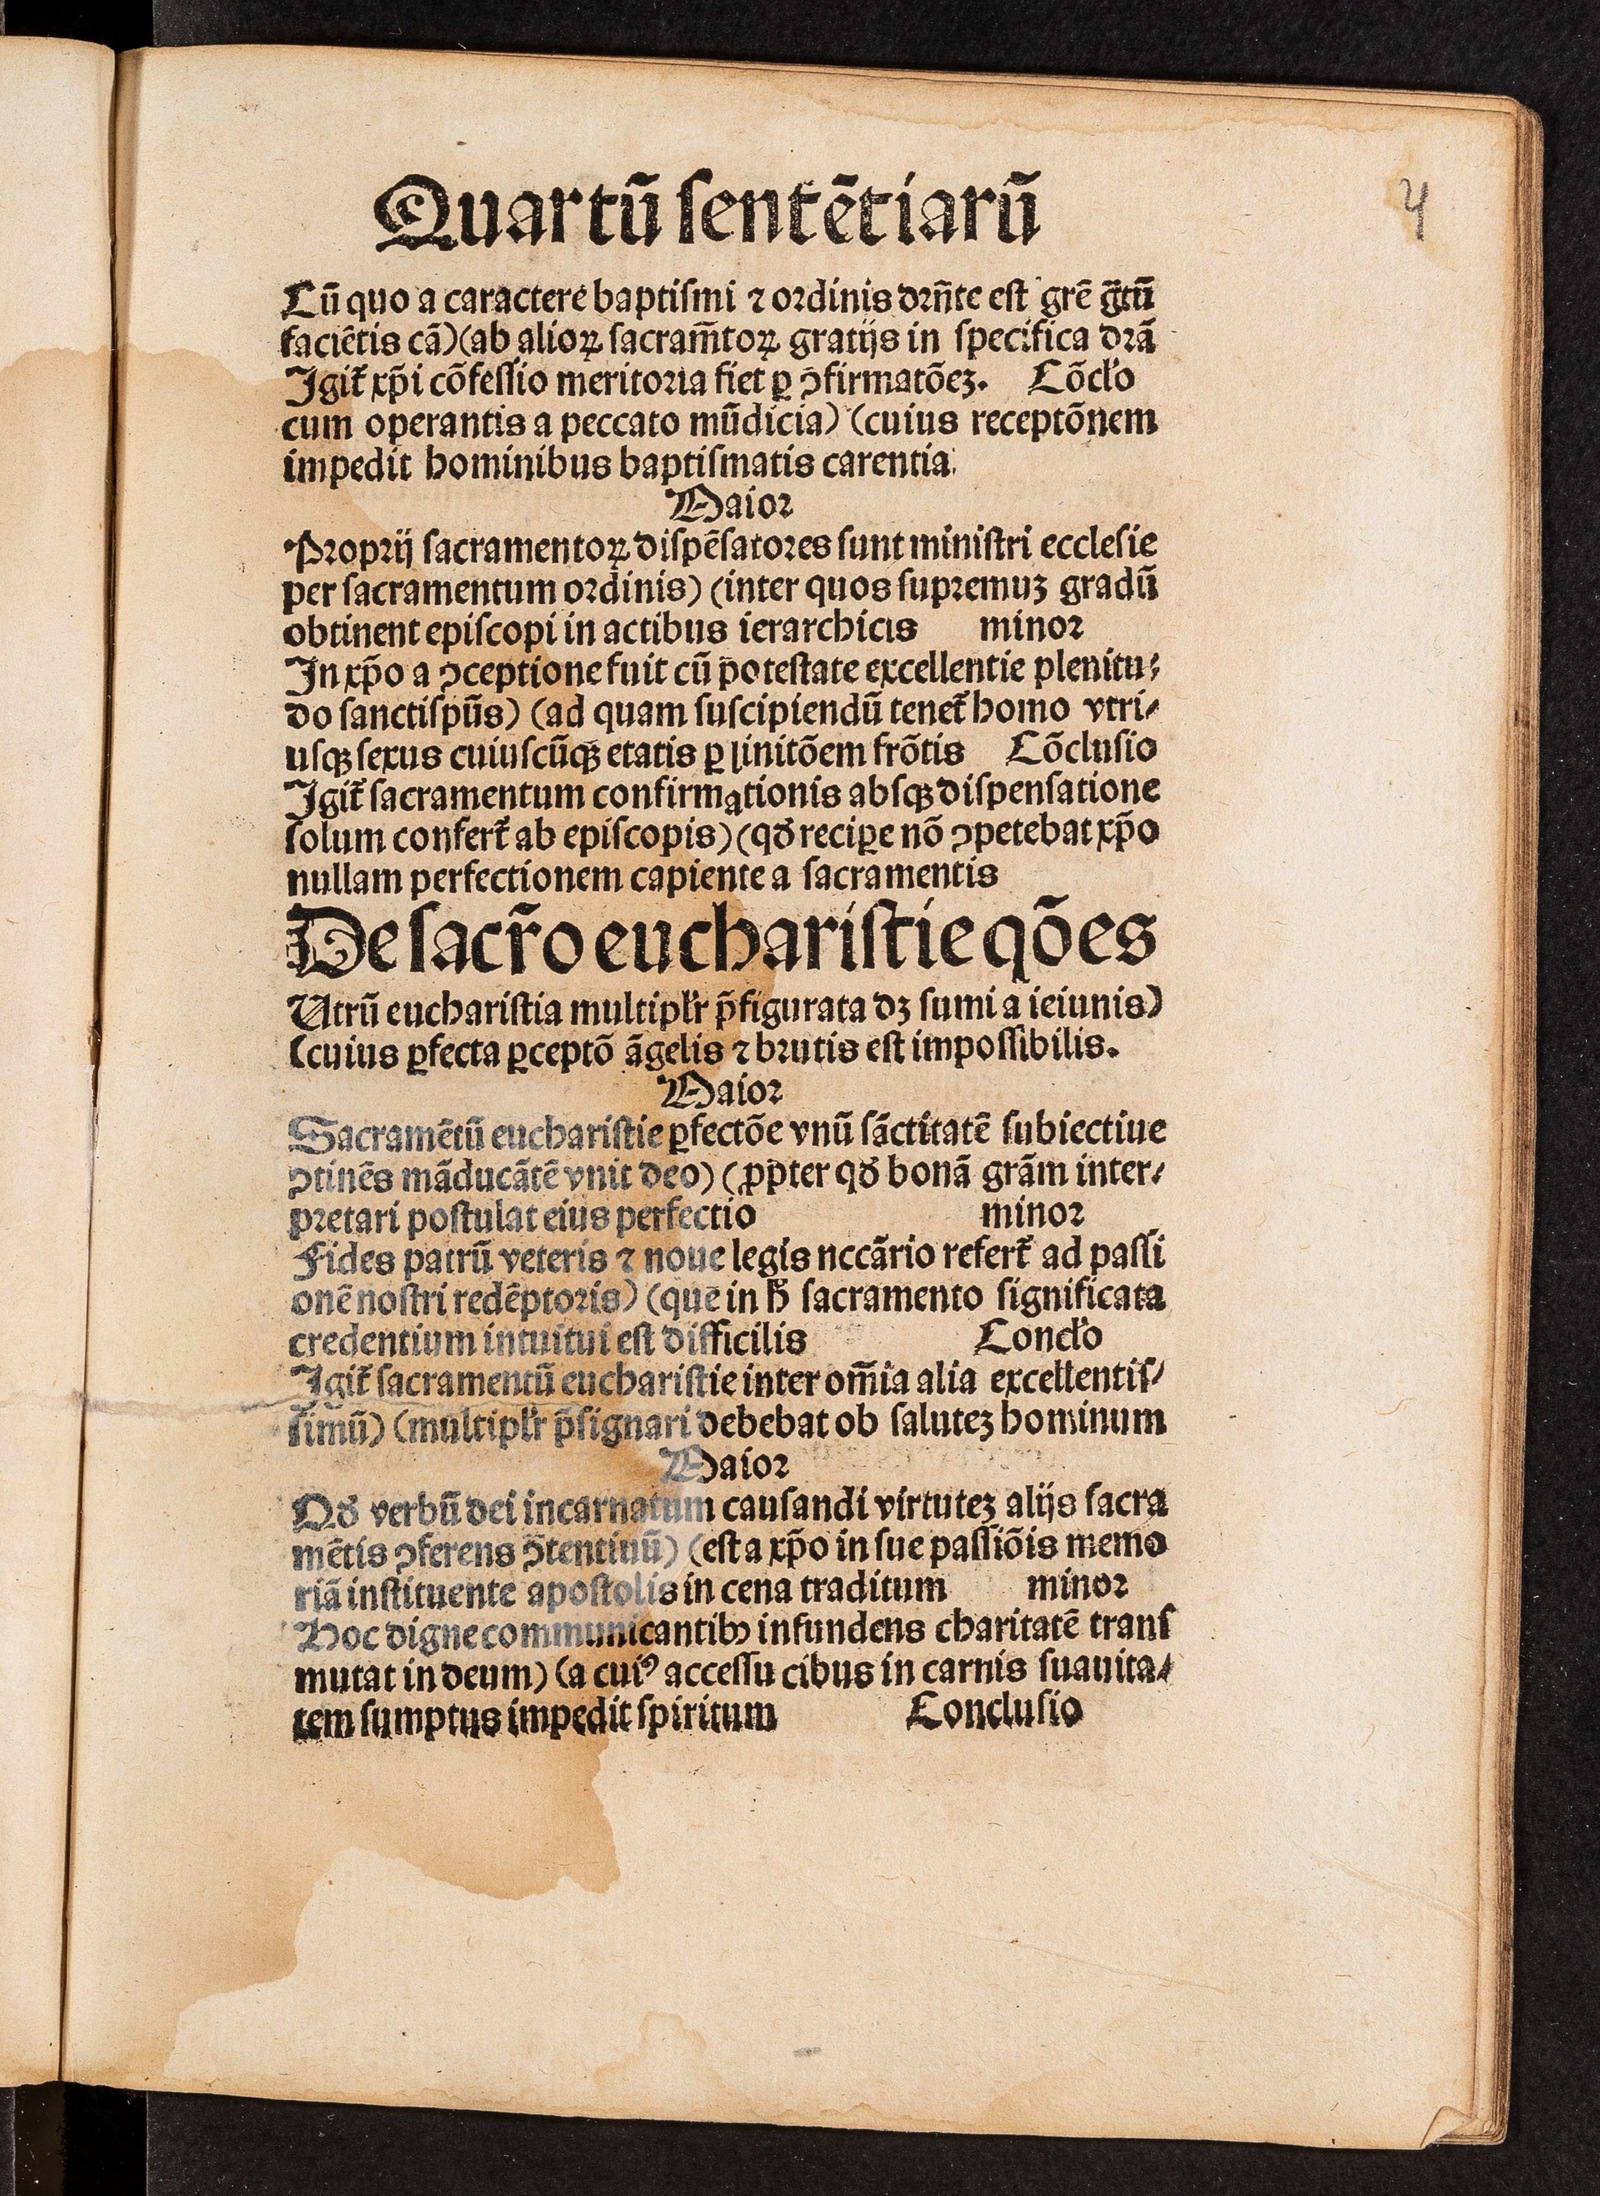 Quartū ſentētiarū
4
Cū quo a caractere baptiſmi ⁊ ordinis drñte eſt grē g̃tū
faciētis cā) (ab alioꝝ ſacram̄toꝝ gratijs in ſpecifica drā
Igit᷑ xp̄i cōfeſſio meritoria fiet ꝑ ꝯfirmatōeꝫ. Cōcľo
cum operantis a peccato mūdicia) (cuius receptōnem
impedit hominibus baptiſmatis carentia.
Maior
Proprij ſacramentoꝝ diſpēſatores ſunt miniſtri eccleſie
per ſacramentum ordinis) (inter quos ſupremuꝫ gradū
obtinent epiſcopi in actibus ierarchicis minor
In xp̄o a ꝯceptione fuit cū poteſtate excellentie plenitu⸗
do ſanctiſpūs) (ad quam ſuſcipiendū tenet᷑ homo vtri⸗
uſqꝫ ſexus cuiuſcūqꝫ etatis ꝑ linitōem frōtis Cōcluſio
Igit᷑ ſacramentum confirmationis abſqꝫ diſpenſatione
ſolum confert᷑ ab epiſcopis) (qď reciꝑe nō ꝯpetebat xp̄o
nullam perfectionem capiente a ſacramentis
De ſacr̄o euchariſtie qōes
Utrū euchariſtia multipľr p̄figurata dꝫ ſumi a ieiunis)
(cuius ꝑfecta ꝑceptō āgelis ⁊ brutis eſt impoſſibilis.
Maior
Sacramētū euchariſtie ꝑfectōe vnū ſāctitatē ſubiectiue
ꝯtinēs māducātē vnit deo) (ꝓpter qď bonā grām inter⸗
pretari poſtulat eius perfectio minor
Fides patrū veteris ⁊ noue legis nccārio refert᷑ ad paſſi
onē noſtri redēptoris) (que in ħ ſacramento ſignificata
credentium intuitui eſt difficilis Concľo
Igit᷑ ſacramentū euchariſtie inter om̄ia alia excellentiſ⸗
ſimū) (multipľr p̄ſignari debebat ob ſaluteꝫ hominum
Maior
Qď verbū dei incarnatum cauſandi virtuteꝫ alijs ſacra
mētis ꝯferens ꝯ̄tentiuū) (eſt a xp̄o in ſue paſſiōis memo
riā inſtituente apoſtolis in cena traditum minor
Hoc digne communicantibꝰ infundens charitatē tranſ
mutat in deum) (a cuiꝰ acceſſu cibus in carnis ſuauita⸗
tem ſumptus impedit ſpiritum Concluſio